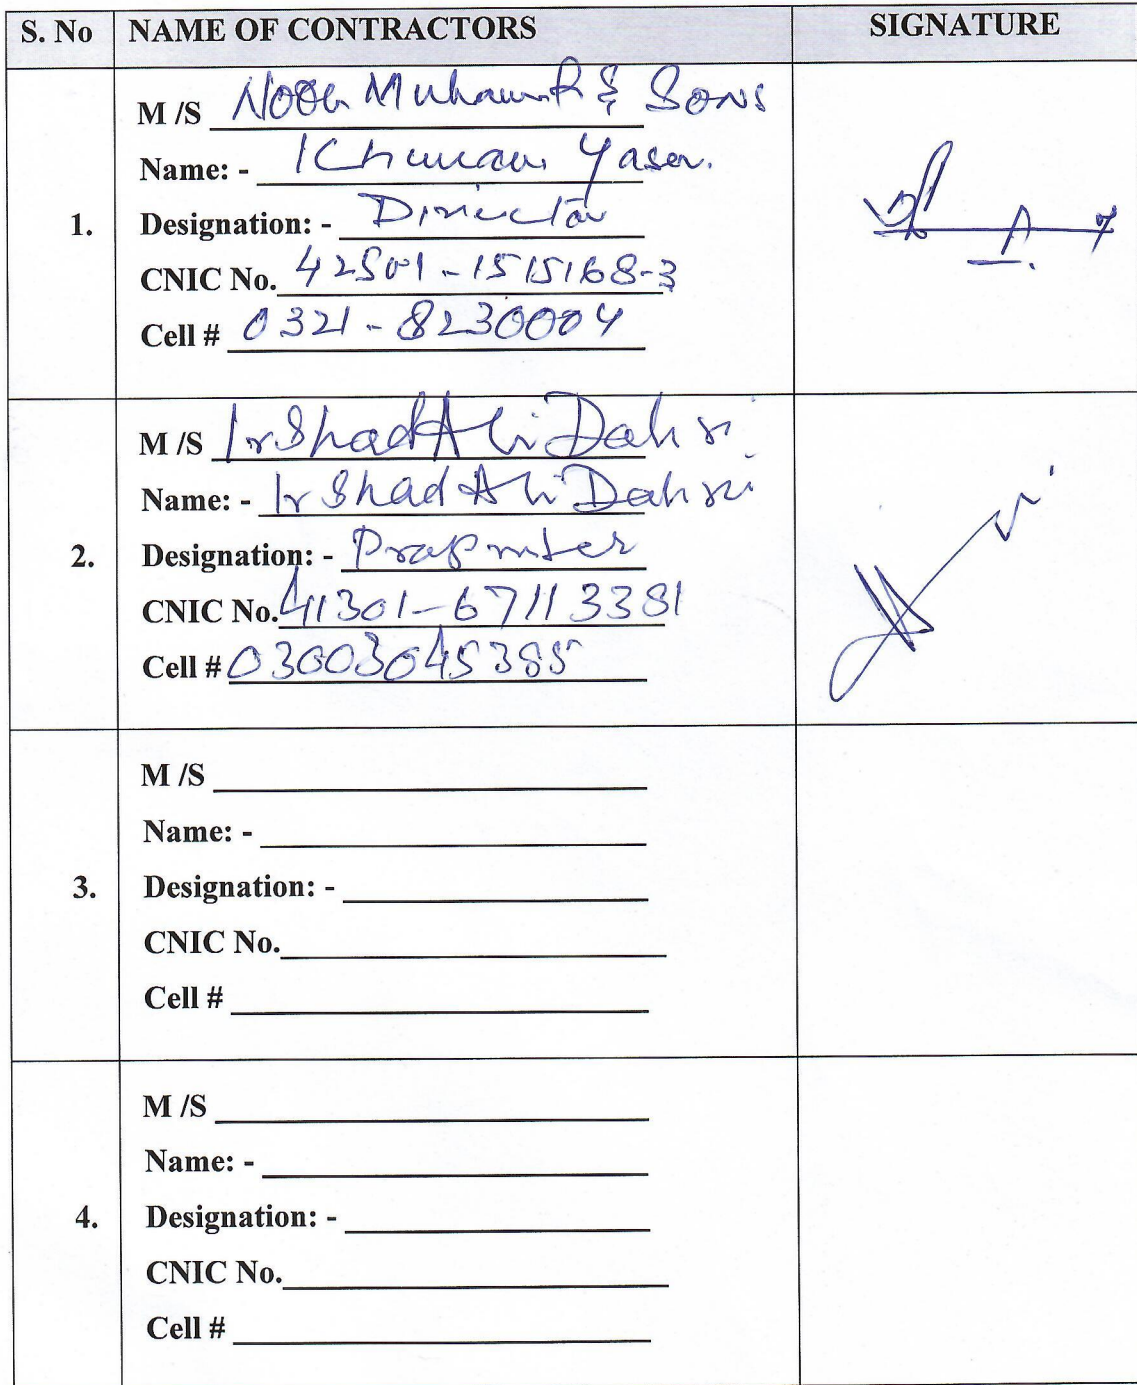 S. No NAME OF CONTRACTORS SIGNATURE
1.
M /S Noor Muhammad & Sons
Name: - Khurram Yaser.
Designation: - Director
CNIC No. 42501-1515168-3
Cell # 0321-8230004
2.
M /S Irshad Ali Dahri
Name: - Irshad Ali Dahri
Designation: - Propriter
CNIC No. 41301-67113381
Cell # 03003045385
3.
M /S
Name: -
Designation: -
CNIC No.
Cell #
4.
M /S
Name: -
Designation: -
CNIC No.
Cell #